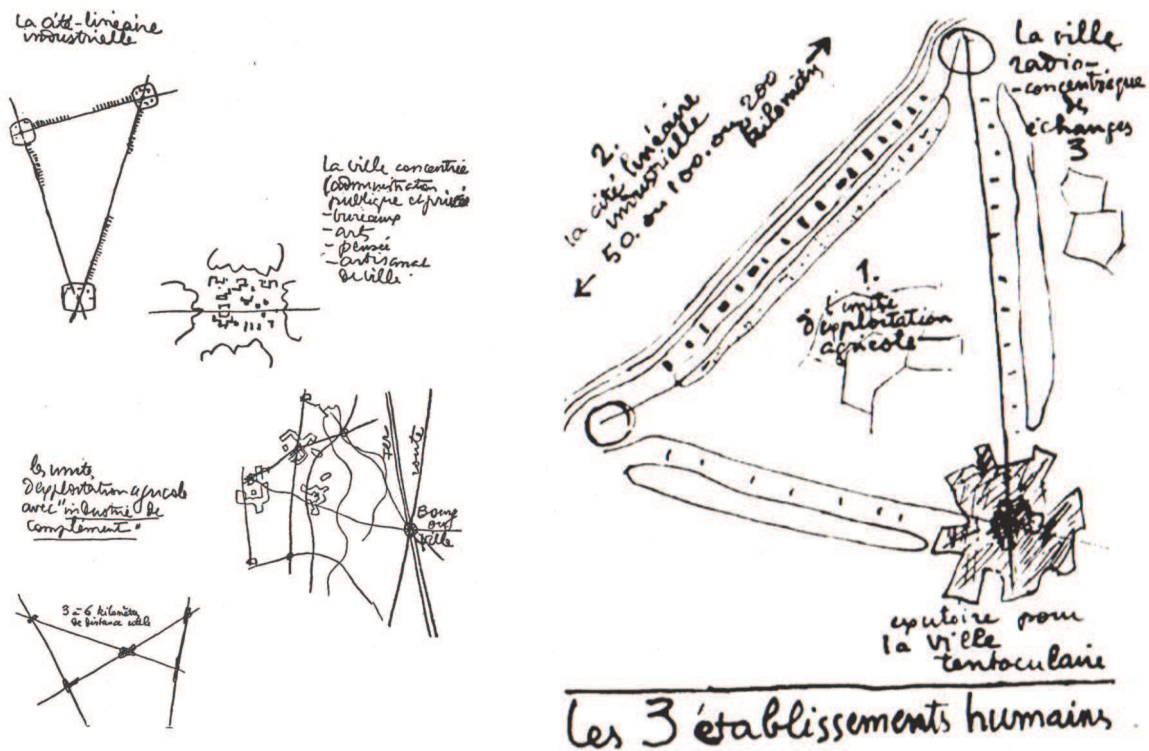 La cité-linéaire
industrielle
La ville concentrée
(administration
publique et privée
-bureaux
-arts
-pensée
-artisanat
de ville
les unités
d'exploitation agricole
avec "industrie de
complément"
fer
route
Bourg
ou
ville
3 à 6 kilomètres
de distance utile
2.
la cité linéaire
industrielle
50. ou 100. ou 200
kilomètres
La ville
radio-
-concentrique
des
échanges
3
1.
l'unité
d'exploitation
agricole
exutoire pour
la ville
tentaculaire
Les 3 établissements humains